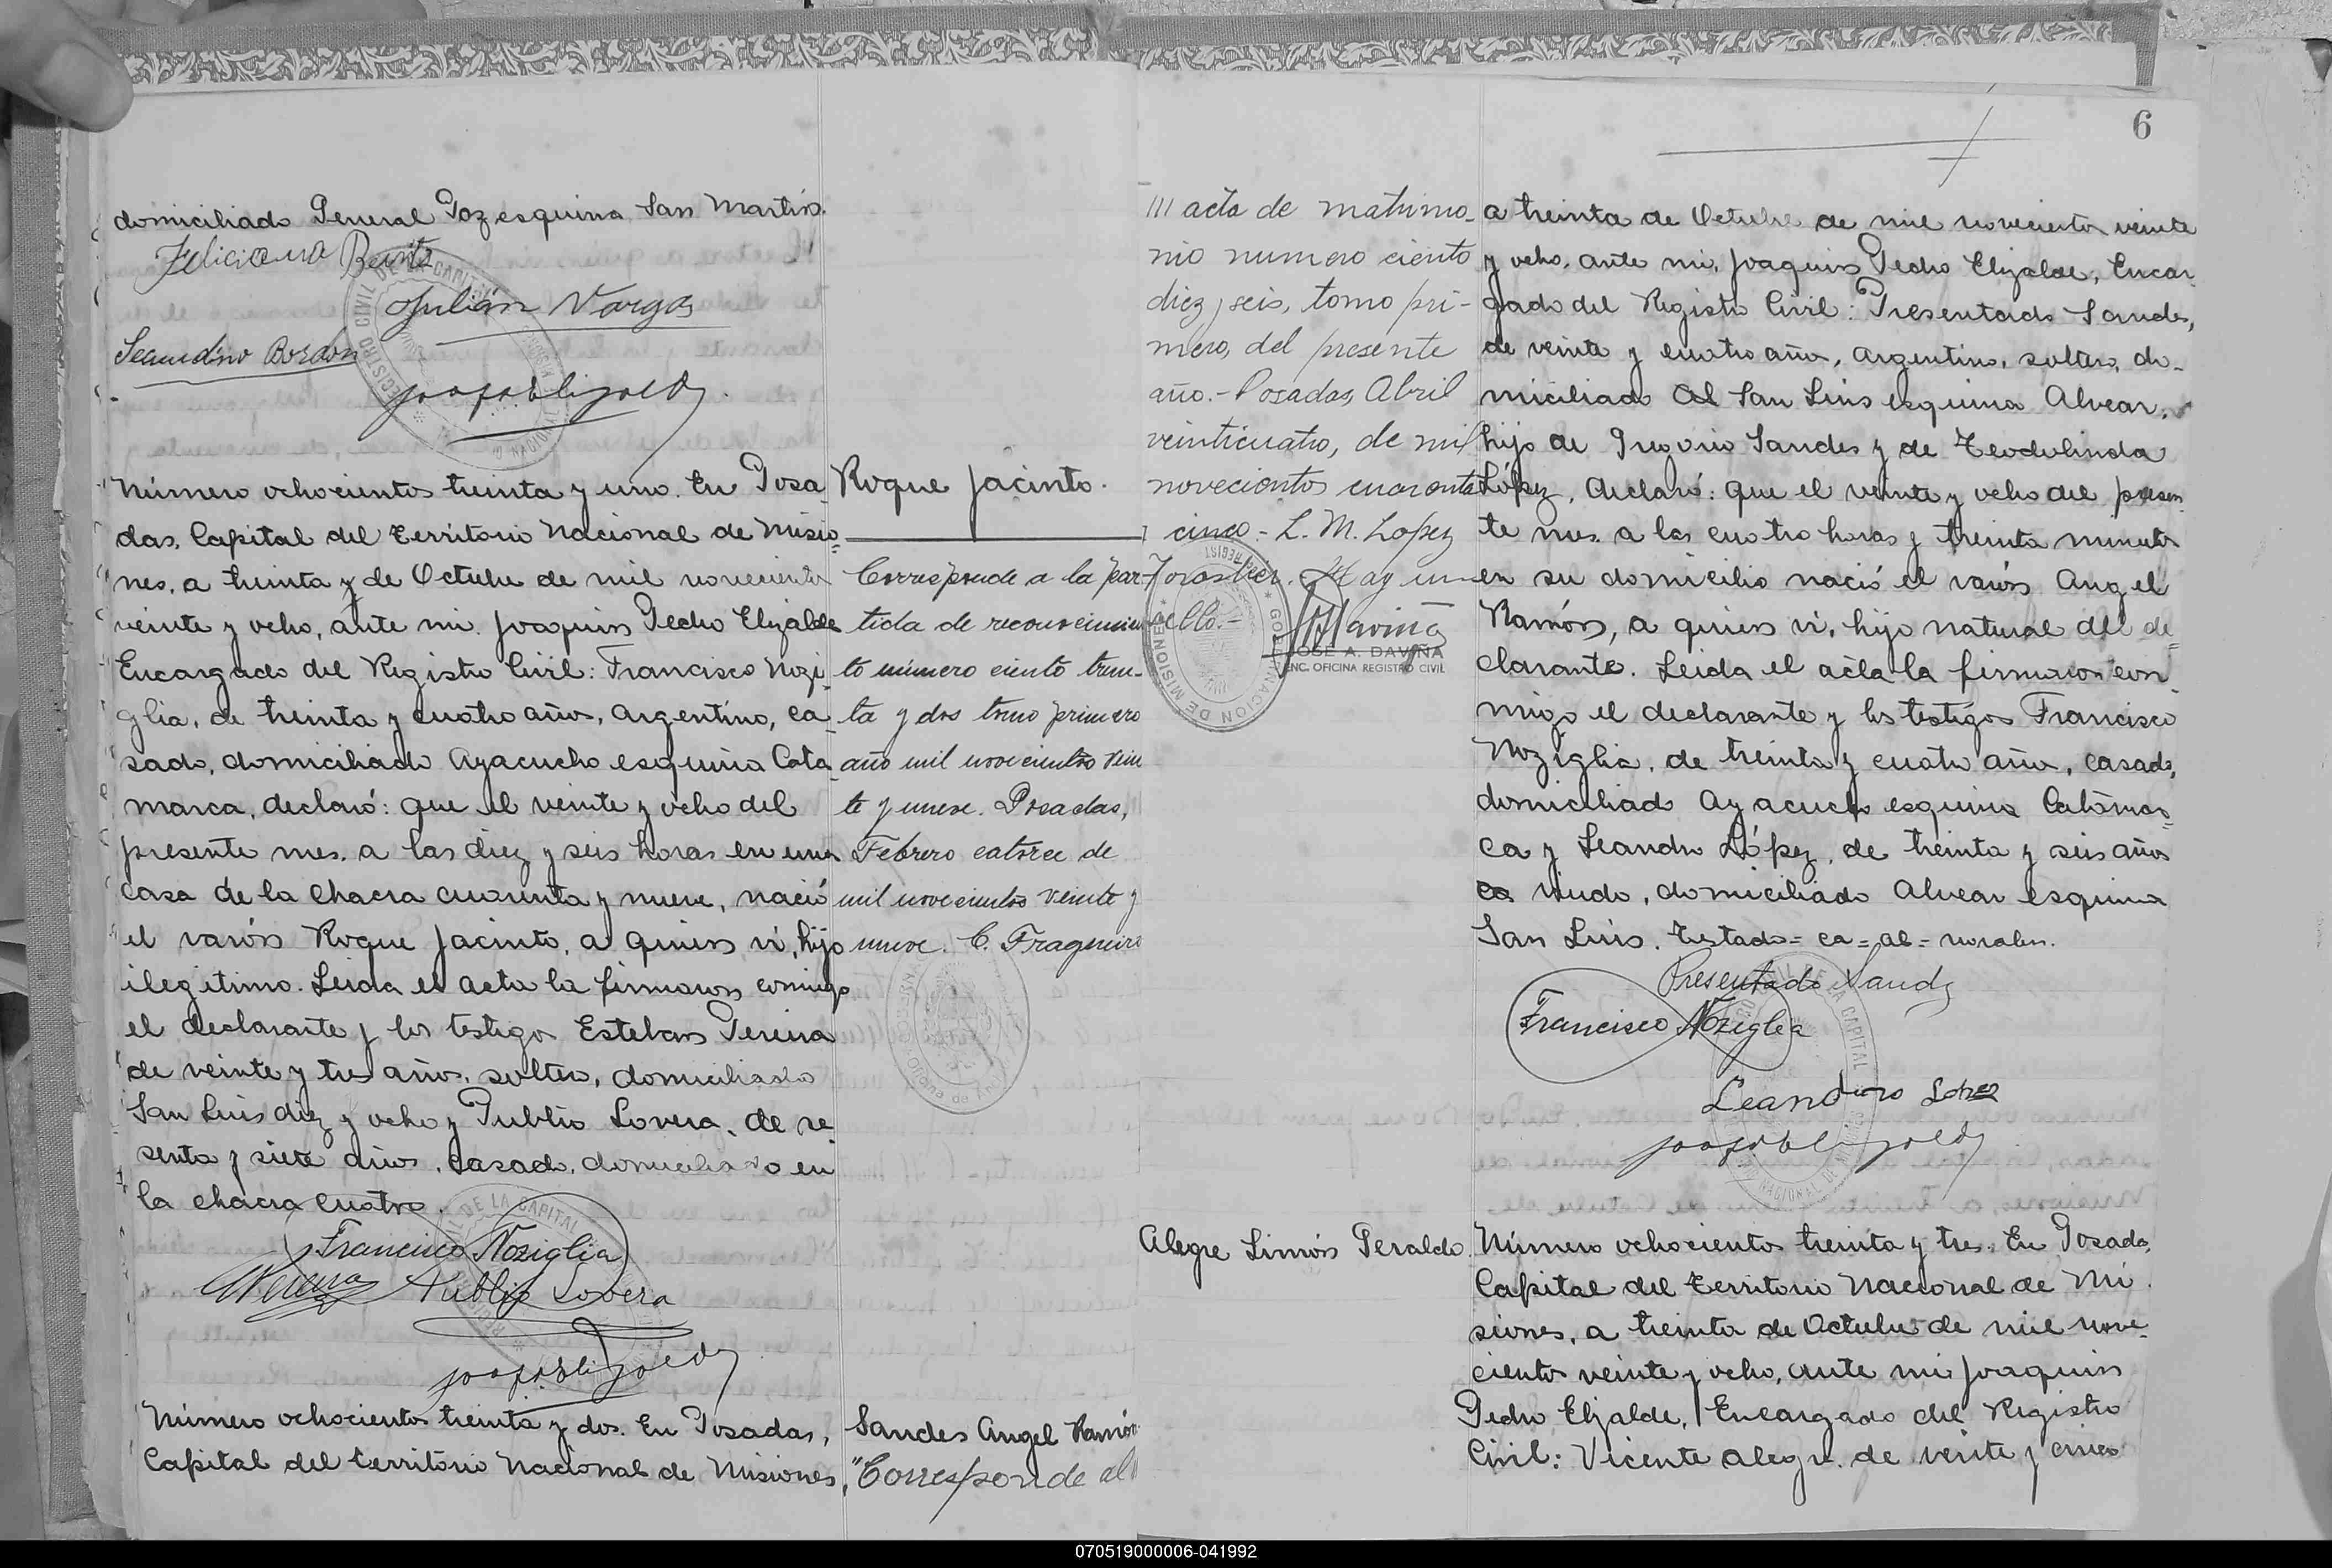 domiciliado General Paz esquina San Martín.
Feliciana Benits
Julián Vargas
Secundino Bordon
Número ochocientos treinta y uno. En Posa-
das, Capital del Territorio Nacional de Misio-
nes, a treinta y de Octubre de mil novecientos
veinte y ocho, ante mi, Joaquin Pedro Elizalde
Encargado del Registro Civil: Francisco Nozi-
glia, de treinta y cuatro años, argentino, ca-
sado, domiciliado Ayacucho esquina Cata-
marca, declaró: que el veinte y ocho del
presente mes, a las diez y seis horas en una
casa de la chacra cuarenta y nueve, nació
el varón Roque Jacinto, a quien vi, hijo
ilegitimo. Leida el acta la firmaron conmigo
el declarante y los testigos Esteban Pereira
de veinte y tres años, soltero, domiciliado
San Luis diez y ocho y Publio Lovera, de se-
senta y siete años, casado, domiciliado en
la chacra cuatro.
Francisco Noziglia
EPereira Publio Lovera
Número ochocientos treinta y dos. En Posadas,
Capital del territorio Nacional de Misiones,
Roque Jacinto.
Corresponde a la par-
tida de reconocimien
to número ciento trein-
ta y dos tomo primero
año mil novecientos vein
te y nueve. Posadas,
Febrero catorce de
mil novecientos veinte y
nueve. C. Fragueiro
Sandes Angel Ramón
"Corresponde al
6
/// acta de matrimo-
nio numero ciento
diez y seis, tomo pri-
mero, del presente
año.- Posadas, Abril
veinticuatro, de mil
novecientos cuarenta
cinco.- L. M. Lopez
Forastier. Hay un
sello.-
JOSE A. DAVIÑA
ENC. OFICINA REGISTRO CIVIL
GOBERNACION DE MISIONES
a treinta de Octubre de mil novecientos veinte
y ocho, ante mi, Joaquin Pedro Elizalde, Encar-
gado del Registro Civil: Presentado Sandes,
de veinte y cuatro años, argentino, soltero, do-
miciliado al San Luis esquina Alvear,
hijo de Gregorio Sandes y de Teodolinda
López, declaró: que el veinte y ocho del presen
te mes a las cuatro horas y treinta minutos
en su domicilio nació el varón Angel
Ramón, a quien vi, hijo natural del de-
clarante. Leida el acta la firmaron con-
migo el declarante y los testigos Francisco
Noziglia, de treinta y cuatro años, casado,
domiciliado Ayacucho esquina Catamar-
ca y Leandro López, de treinta y seis años
ca viudo, domiciliado Alvear esquina
San Luis. Testado= ca = al = no valen.
Presentado Sandes
Francisco Noziglia
Leandro Lopez
Alegre Simón Peraldo.
Número ochocientos treinta y tres. En Posadas,
Capital del Territorio Nacional de Mi-
siones, a treinta de Octubre de mil nove-
cientos veinte y ocho, ante mi Joaquin
Pedro Elizalde, Encargado del Registro
Civil: Vicente Alegre, de veinte y cinco
070519000006-041992